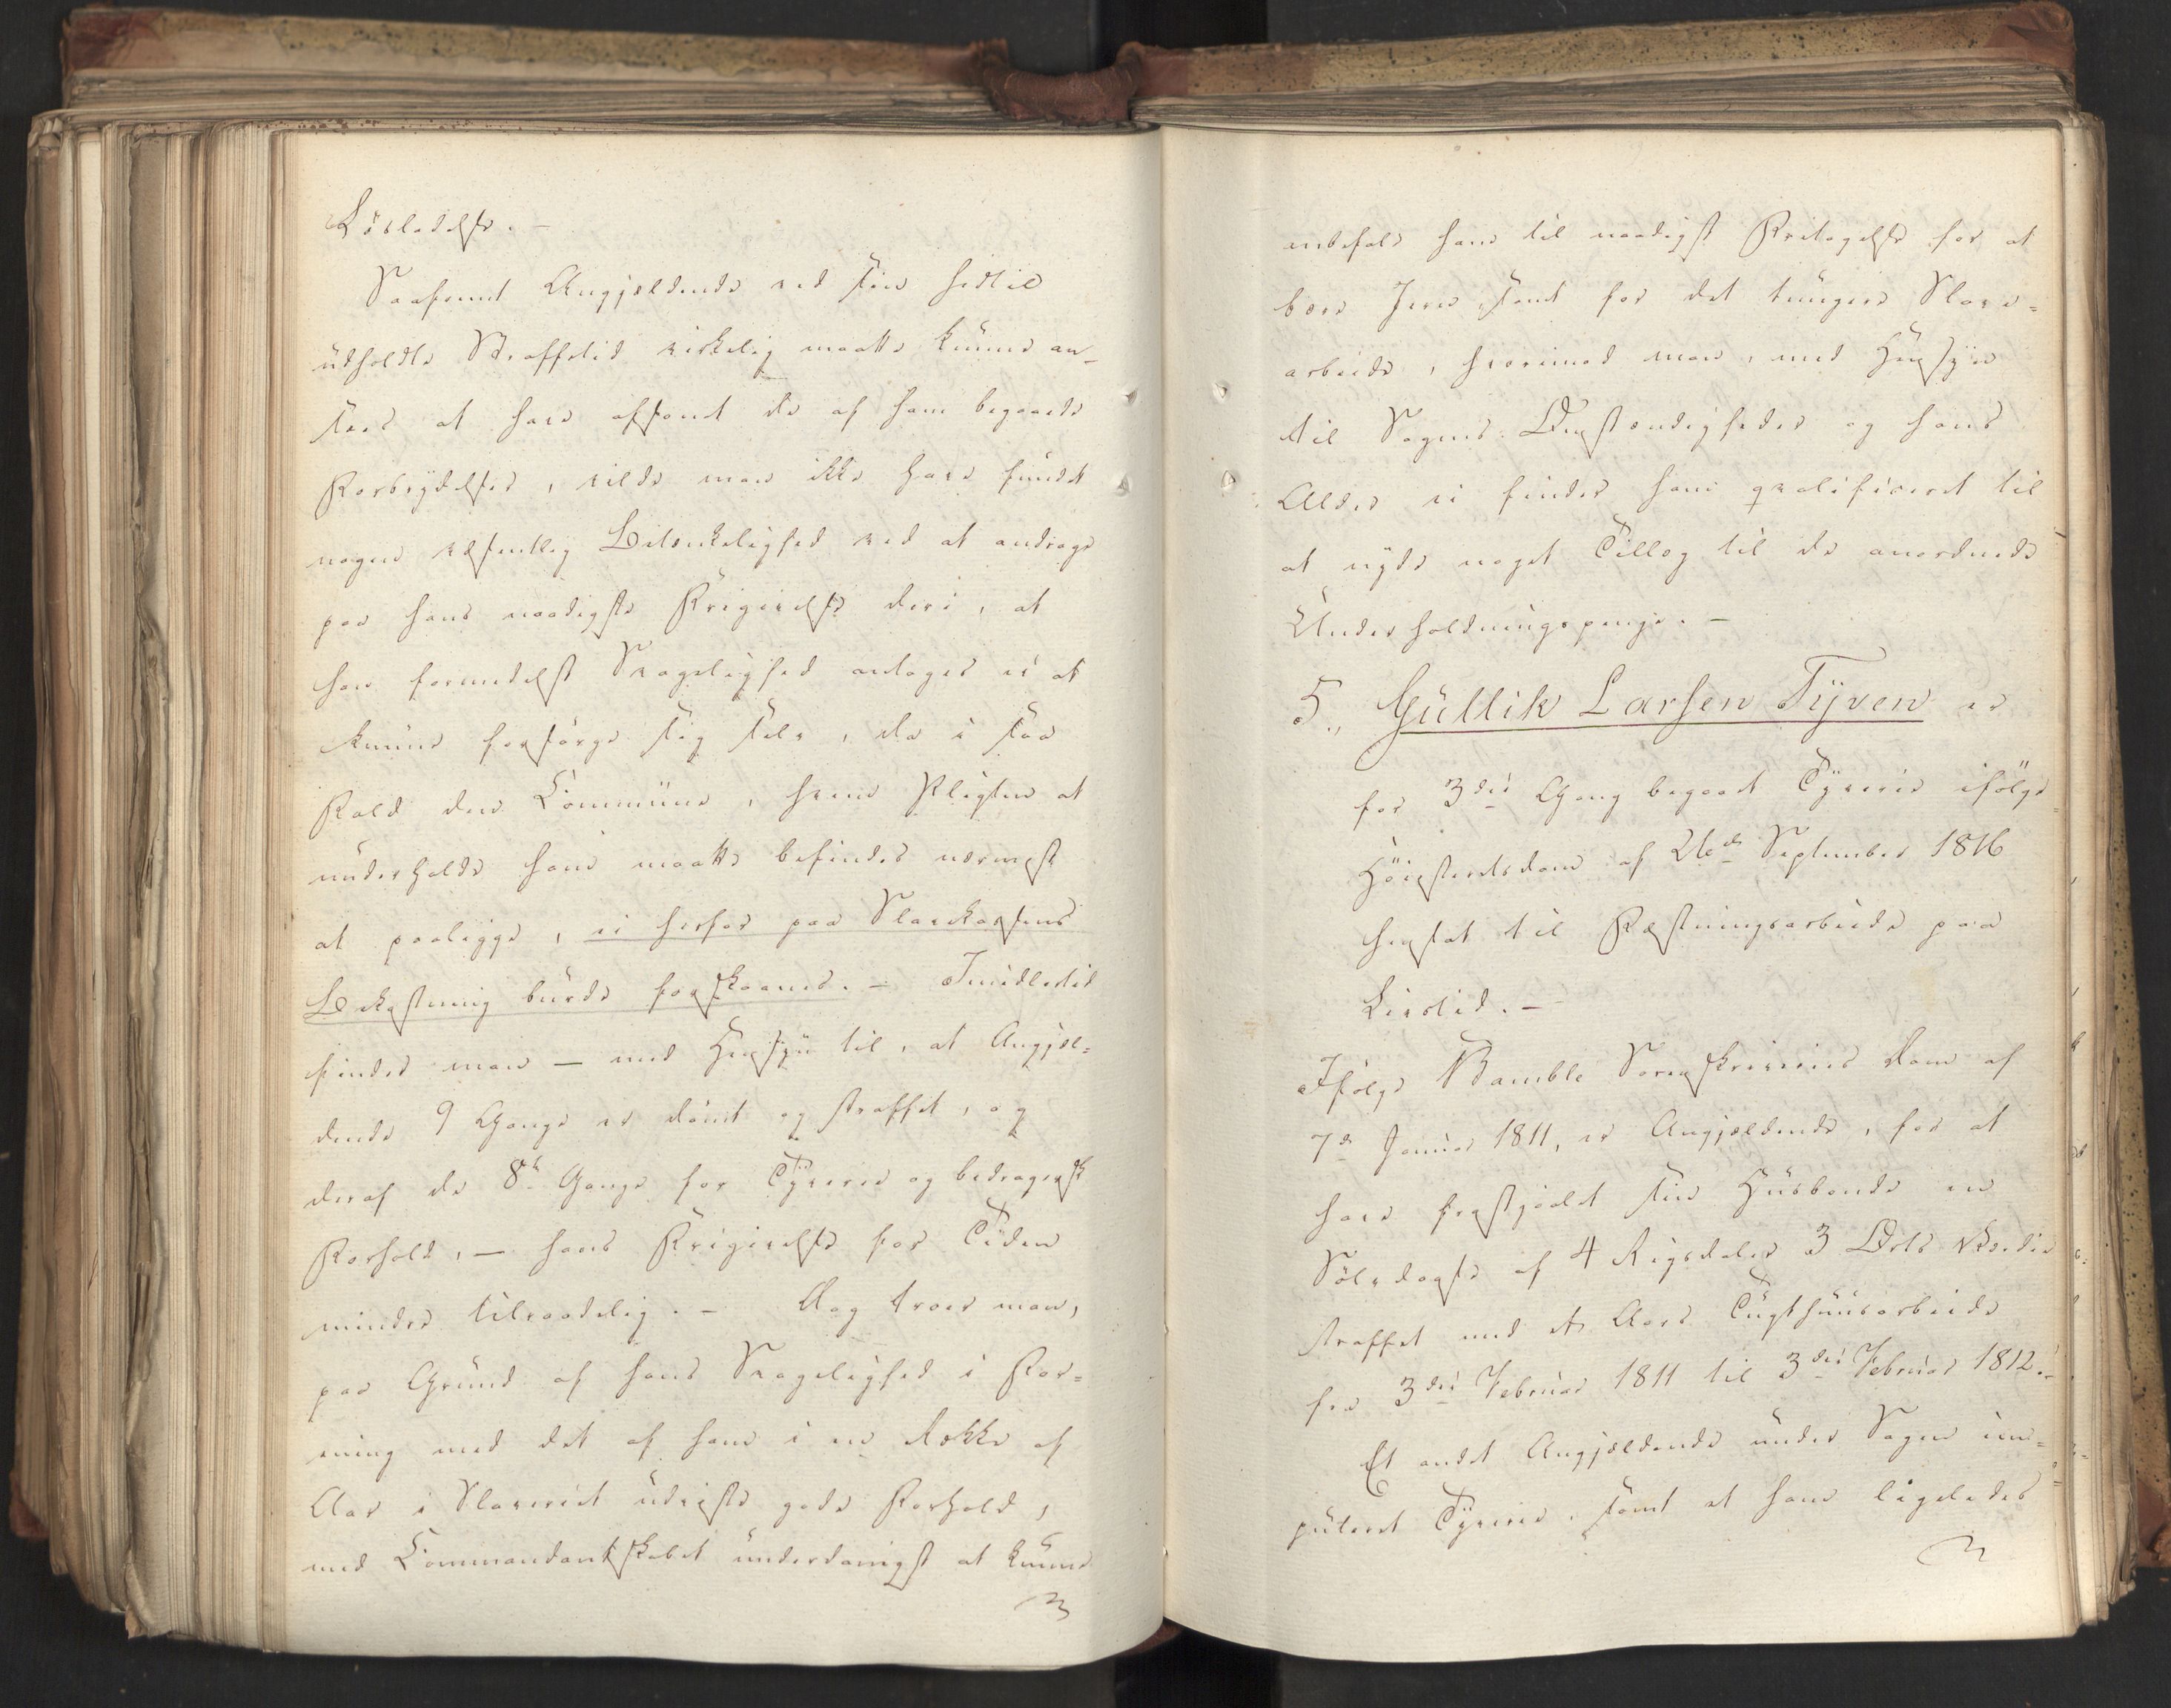 Lösladelse. —
Saafremt Angjeldende ved sin hidtil
udholdte Straffetid virkelig maatte kunne an-
sees at have afsonet de af ham begaaede
Forbrydelser, vilde man ikke have fundet
nogen væsentlig Betænkelighed ved at andrage
paa hans naadigste Frigivelse deri, at
han formedelst Svagelighed antages ei at
kunne forsörge sig selv, da i saa
Fald den Commune, hvem Pligten at
underholde ham maatte befindes nærmest
at paaligge, ei herfor paa Slavekassens
Bekostning burde forskaanes. — Imidlertid
finder man — med Hensyn til, at Angjel=
dende 9 Gange er dömt og straffet, og
deraf de 8te Gange for Tyverie og bedragersk
Forhold, — hans Frigivelse for Tiden
mindre tilraadelig. — Dog troer man,
paa Grund af hans Svagelighed i For=
ening med det af ham i en Række af
Aar i Slaveriet udviste gode Forhold,
med Commandantskabet underdanigst at kunne
anbefale ham til naadigst Fritagelse for at
bære Jern samt for det tungere Slave=
arbeide, hvorimod man, med Hensyn
til Sagens Omstændigheder og hans
Alder ei finder ham qvalificeret til
at nyde noget Tillæg til de anordnede
Underholdningspenge. —
5., Gullik Larsen Tyven er
for 3die Gang begaaet Tyverie ifölge
Höiesteretsdom af 26de September 1816
hensat til Fæstningsarbeide paa
Livstid. —
Ifölge Bamble Sorenskriveries Dom af
7de Januar 1811, er Angjeldende, for at
have frastjaalet sin Huusbonde en
Sölvdaase af 4 Rigsdaler 3 Orts Værdie
straffet med et Aars Tugthuusarbeide
fra 3die Februar 1811 til 3die Februar 1812. —
Et andet Angjeldende under Sagen im=
puteret Tyverie, samt at ham ligeledes